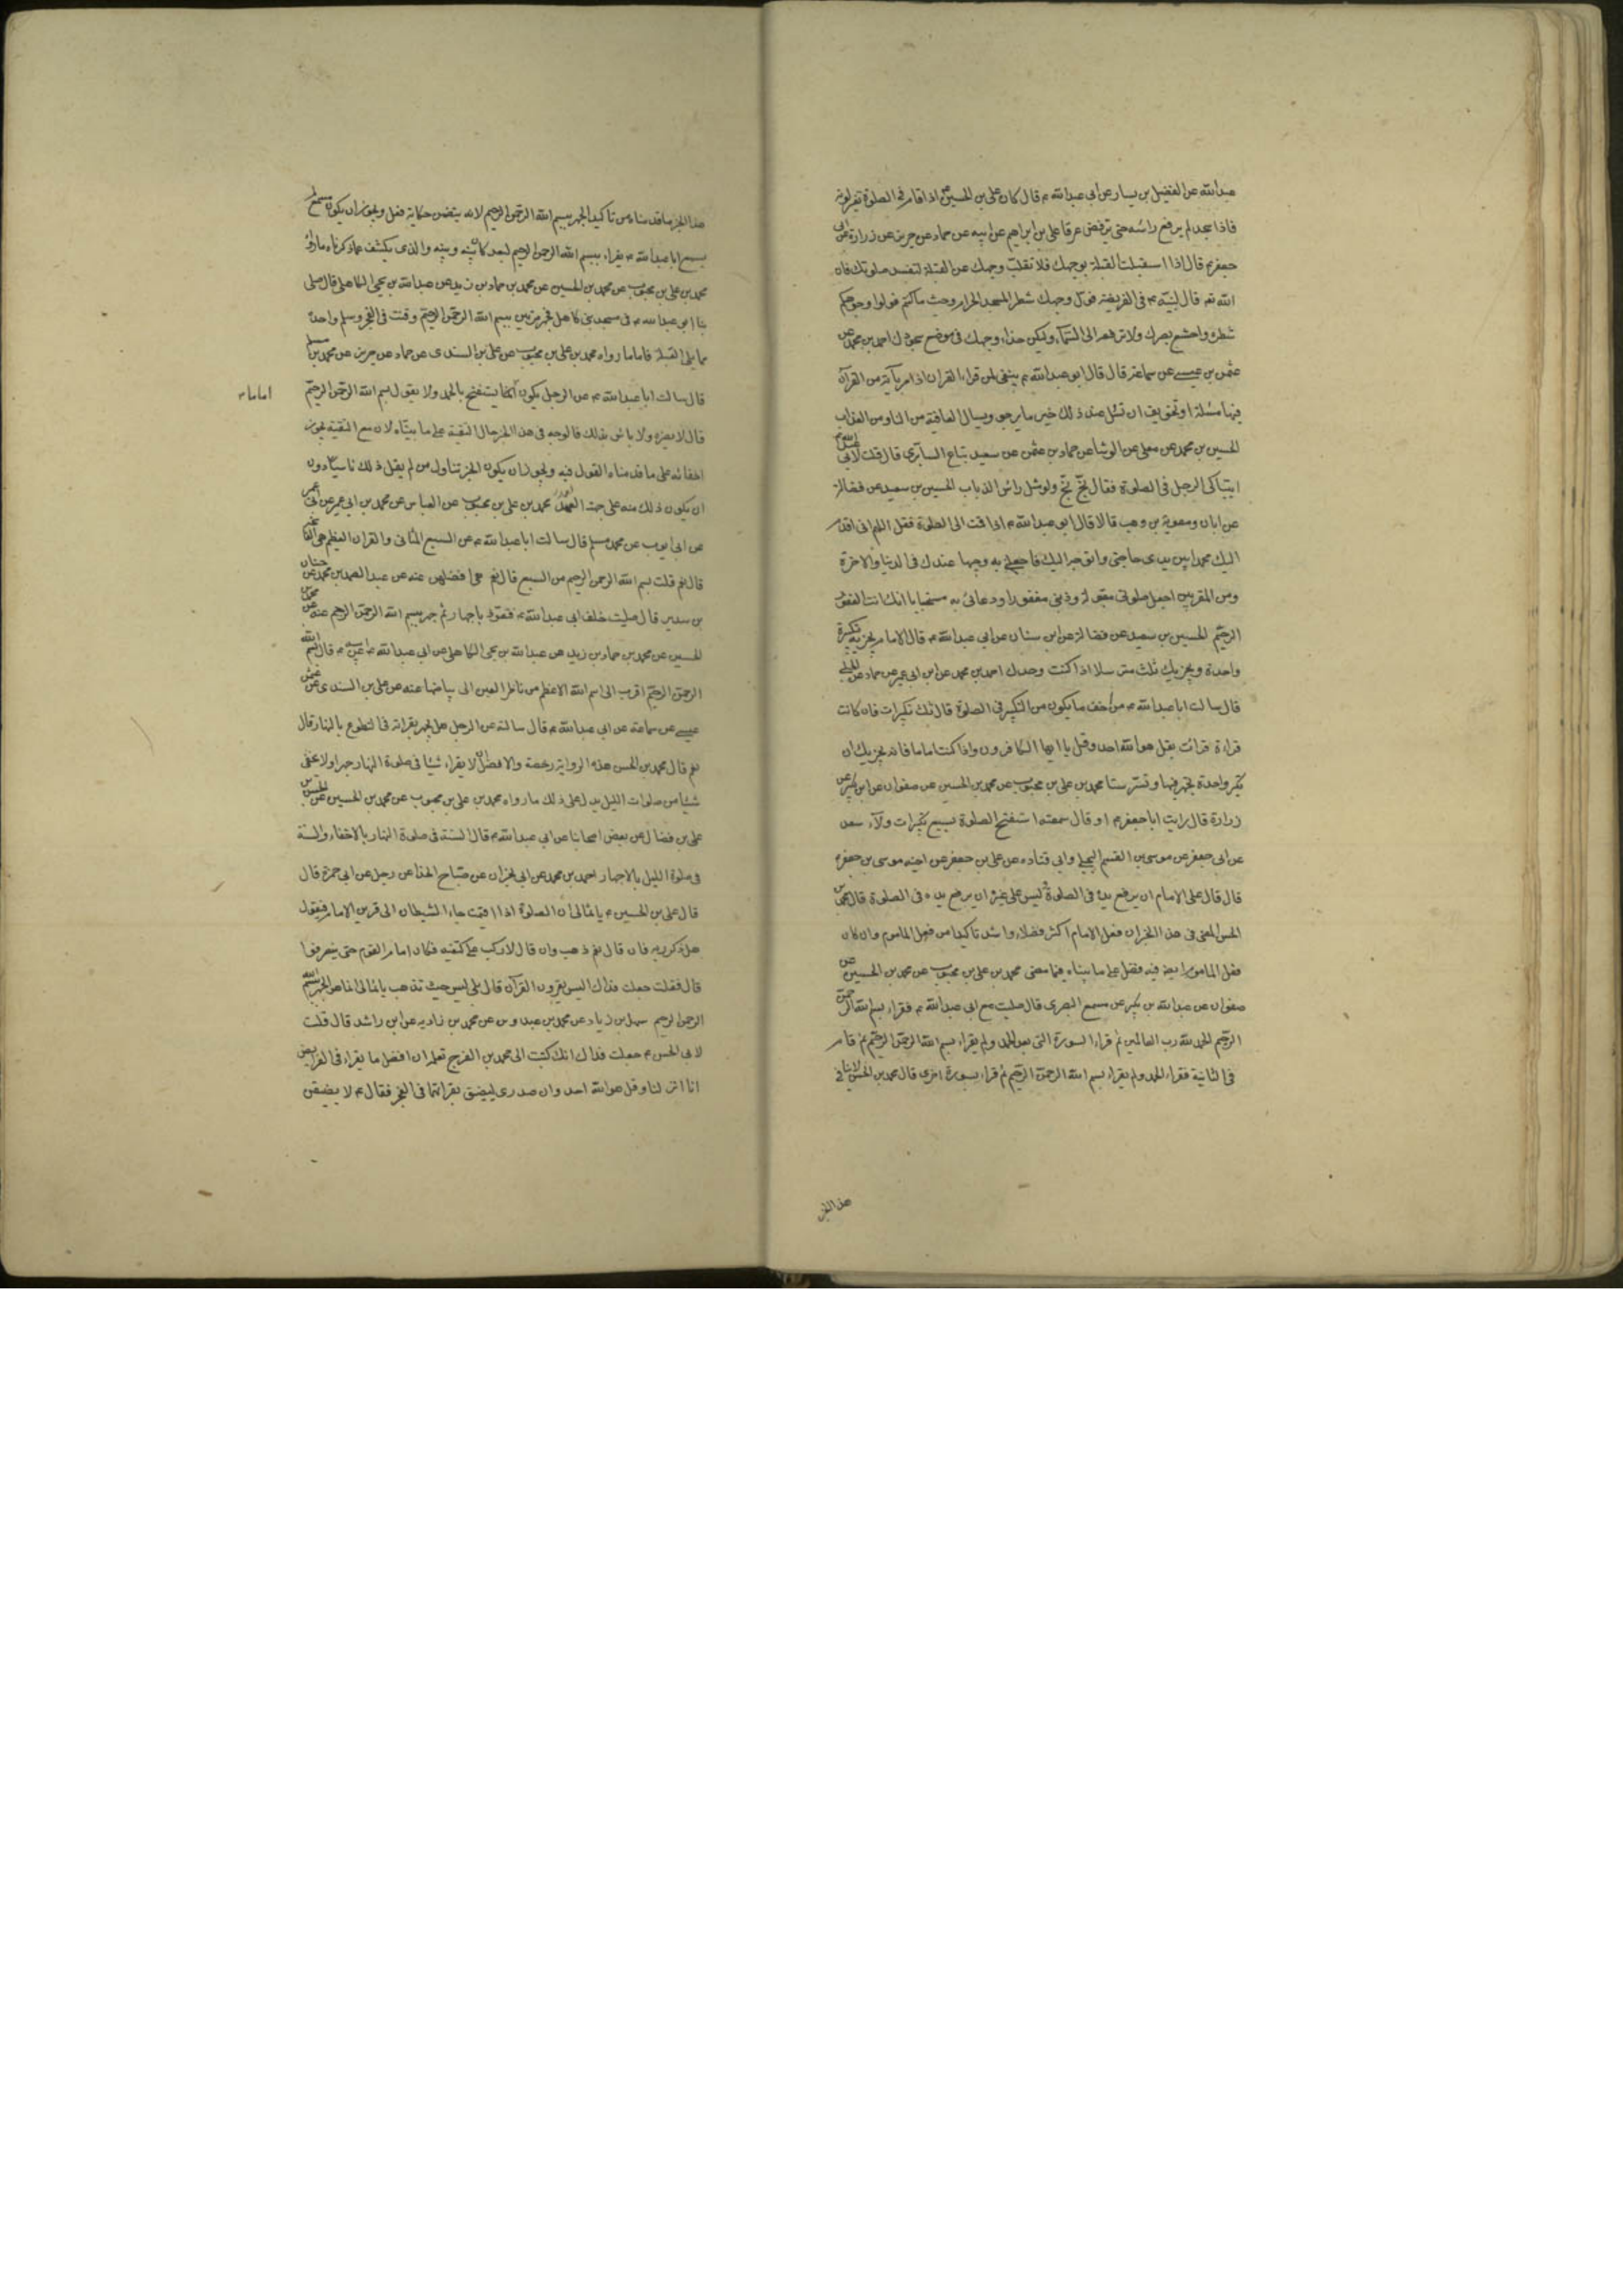 عبدالله عن الفضيل بن يسار عن ابى عبدالله ع قال كان على بن الحسين ع اذا قام فى الصلوة تغير لونه
فاذا سجد لم يرفع راسه حتى يرفض عرقا على بن ابراهيم عن ابيه عن حماد عن حريز عن زرارة عن ابى
جعفر ع قال اذا استقبلت القبلة بوجهك فلا تقلب وجهك عن القبلة لتفسد صلوتك فان
الله تعه قال لنبيه ع فى الفريضة فول وجهك شطر المسجد الحرام وحيث ما كنتم فولوا وجوهكم
شطره واخشع ببصرك ولا ترفعه الى السماء وليكن حذاء وجهك فى موضع سجودك احمد بن محمد عن
عثمن بن عيسى عن سماعة قال قال ابو عبدالله ع ينبغى لمن قراء القران اذا مر بآية من القرآن
فيها مسئلة او تخويف ان تسئل عند ذلك خير ما يرجو ويسال العافية من النار ومن العذاب
الحسين بن محمد عن معلى عن الوشا عن حماد بن عثمن عن سعيد بياع السابرى قال قلت لابى عبدالله ع
ايتباكى الرجل فى الصلوة فقال بخ بخ ولو مثل راس الذباب الحسين بن سعيد عن فضالة
عن ابان ومعوية بن وهب قالا قال ابو عبدالله ع اذا قمت الى الصلوة فقل اللهم انى اقدم
اليك محمدا بين يدى حاجتى واتوجه اليك فاجعلنى به وجيها عندك فى الدنيا والاخرة
ومن المقربين اجعل صلوتى مقبولة وذنبى مغفورا ودعائى به مستجابا انك انت الغفور
الرحيم الحسين بن سعيد عن فضالة عن ابن سنان عن ابى عبدالله ع قال الامام يجزيه تكبيرة
واحدة ويجزيك ثلث مترسلا اذا كنت وحدك احمد بن محمد عن ابن ابى عمير عن حماد عن الحلبى
قال سالت اباعبدالله ع من اخف ما يكون من التكبير فى الصلوة قال ثلث تكبيرات فان كانت
قراءة قرات بقل هو الله احد وقل يا ايها الكافرون واذا كنت اماما فانه يجزيك ان
تكبر واحدة تجهر فيها وتسر ستا محمد بن على بن محبوب عن محمد بن الحسين عن صفوان عن ابن بكير عن
زرارة قال رايت اباجعفر ع او قال سمعته استفتح الصلوة بسبع تكبيرات ولاء سعد
عن ابى جعفر عن موسى بن القسم البجلى وابى قتادة عن على بن جعفر عن اخيه موسى بن جعفر ع
قال قال على الامام ان يرفع يده فى الصلوة ليس على غيره ان يرفع يده فى الصلوة قال محمد بن
الحسن المعنى فى هذا الخبر ان فعل الامام اكثر فضلا واشد تاكيدا من فعل الماموم وان كان
فعل الماموم ايضا فيه فضل على ما بيناه فيما مضى محمد بن على بن محبوب عن محمد بن الحسين عن
صفوان عن عبدالله بن بكير عن مسمع البصرى قال صليت مع ابى عبدالله ع فقراء بسم الله الرحمن
الرحيم الحمد لله رب العالمين ثم قراء السورة التى بعد الحمد ولم يقراء بسم الله الرحمن الرحيم ثم قام
فى الثانية فقراء الحمد ولم يقراء بسم الله الرحمن الرحيم ثم قراء بسورة اخرى قال محمد بن الحسن لا ينافى
هذا الخبر
هذا الخبر ما قدمناه من تاكيد الجهر ببسم الله الرحمن الرحيم لانه يتضمن حكاية فعل ويجوز ان يكون مسمع لم
يسمع اباعبدالله ع يقراء ببسم الله الرحمن الرحيم لبعد كان بينه وبينه والذى يكشف عما ذكرناه ما رواه
محمد بن على بن محبوب عن محمد بن الحسين عن محمد بن حماد بن زيد عن عبدالله بن يحيى الكاهلى قال صلى
بنا ابو عبدالله ع فى مسجد بنى كاهل فجهر مرتين ببسم الله الرحمن الرحيم وقنت فى الفجر وسلم واحدة
مما يلى القبلة فاما ما رواه محمد بن على بن محبوب عن على بن السندى عن حماد عن حريز عن محمد بن مسلم
قال سالت اباعبدالله ع عن الرجل يكون اماما يستفتح بالحمد ولا يقول بسم الله الرحمن الرحيم
اماما
قال لا يضره ولا باس بذلك فالوجه فى هذا الخبر حال التقية على ما بيناه لان مع التقية يجوز
اخفائه على ما قدمناه القول فيه ويجوز ان يكون الخبر تناول من لم يقل ذلك ناسيا دون
ان يكون ذلك منه على جهة العمد محمد بن على بن محبوب عن العباس عن محمد بن ابى عمير عن ابى
عن ابى ايوب عن محمد بن مسلم قال سالت اباعبدالله ع عن السبع المثانى والقران العظيم هى الفاتحة
قال نعم قلت بسم الله الرحمن الرحيم من السبع قال نعم هى افضلهن عنه عن عبد الصمد بن محمد عن حنان
بن سدير قال صليت خلف ابى عبدالله ع فتعوذ باجهار ثم جهر ببسم الله الرحمن الرحيم عنه عن محمد بن
الحسين عن محمد بن حماد بن زيد عن عبدالله بن يحيى الكاهلى عن ابى عبدالله عن ابيه ع قال بسم الله
الرحمن الرحيم اقرب الى اسم الله الاعظم من ناظر العين الى بياضها عنه عن على بن السندى عن عثمن
عيسى عن سماعة عن ابى عبدالله ع قال سالته عن الرجل هل يجهر بقرائته فى التطوع بالنهار قال
نعم قال محمد بن الحسن هذه الرواية رخصة والافضل ان لا يقراء شيئا فى صلوة النهار جهرا ولا يخفى
شيئا من صلوات الليل يدل على ذلك ما رواه محمد بن على بن محبوب عن محمد بن الحسين عن الحسن بن
على بن فضال عن بعض اصحابنا عن ابى عبدالله ع قال السنة فى صلوة النهار بالاخفاء والسنة
فى صلوة الليل بالاجهار احمد بن محمد عن ابى نجران عن صباح الحذا عن رجل عن ابى حمزة قال
قال على بن الحسين ع يا ثمالى ان الصلوة اذا اقيمت جاء الشيطان الى قرين الامام فيقول
هل ذكر ربه فان قال نعم ذهب وان قال لا ركب على كتفيه فكان امام القوم حتى ينصرفوا
قال فقلت جعلت فداك اليس يقرؤن القرآن قال بلى ليس حيث تذهب يا ثمالى انما هو الجهر ببسم الله
الرحمن الرحيم سهل بن زياد عن محمد بن عبدوس عن محمد بن زاديه عن ابن راشد قال قلت
لابى الحسن ع جعلت فداك انك كتبت الى محمد بن الفرج تعلمه ان افضل ما يقراء فى الفرايض
انا انزلناه وقل هو الله احد وان صدرى ليضيق بقرائتهما فى الفجر فقال ع لا يضيقن